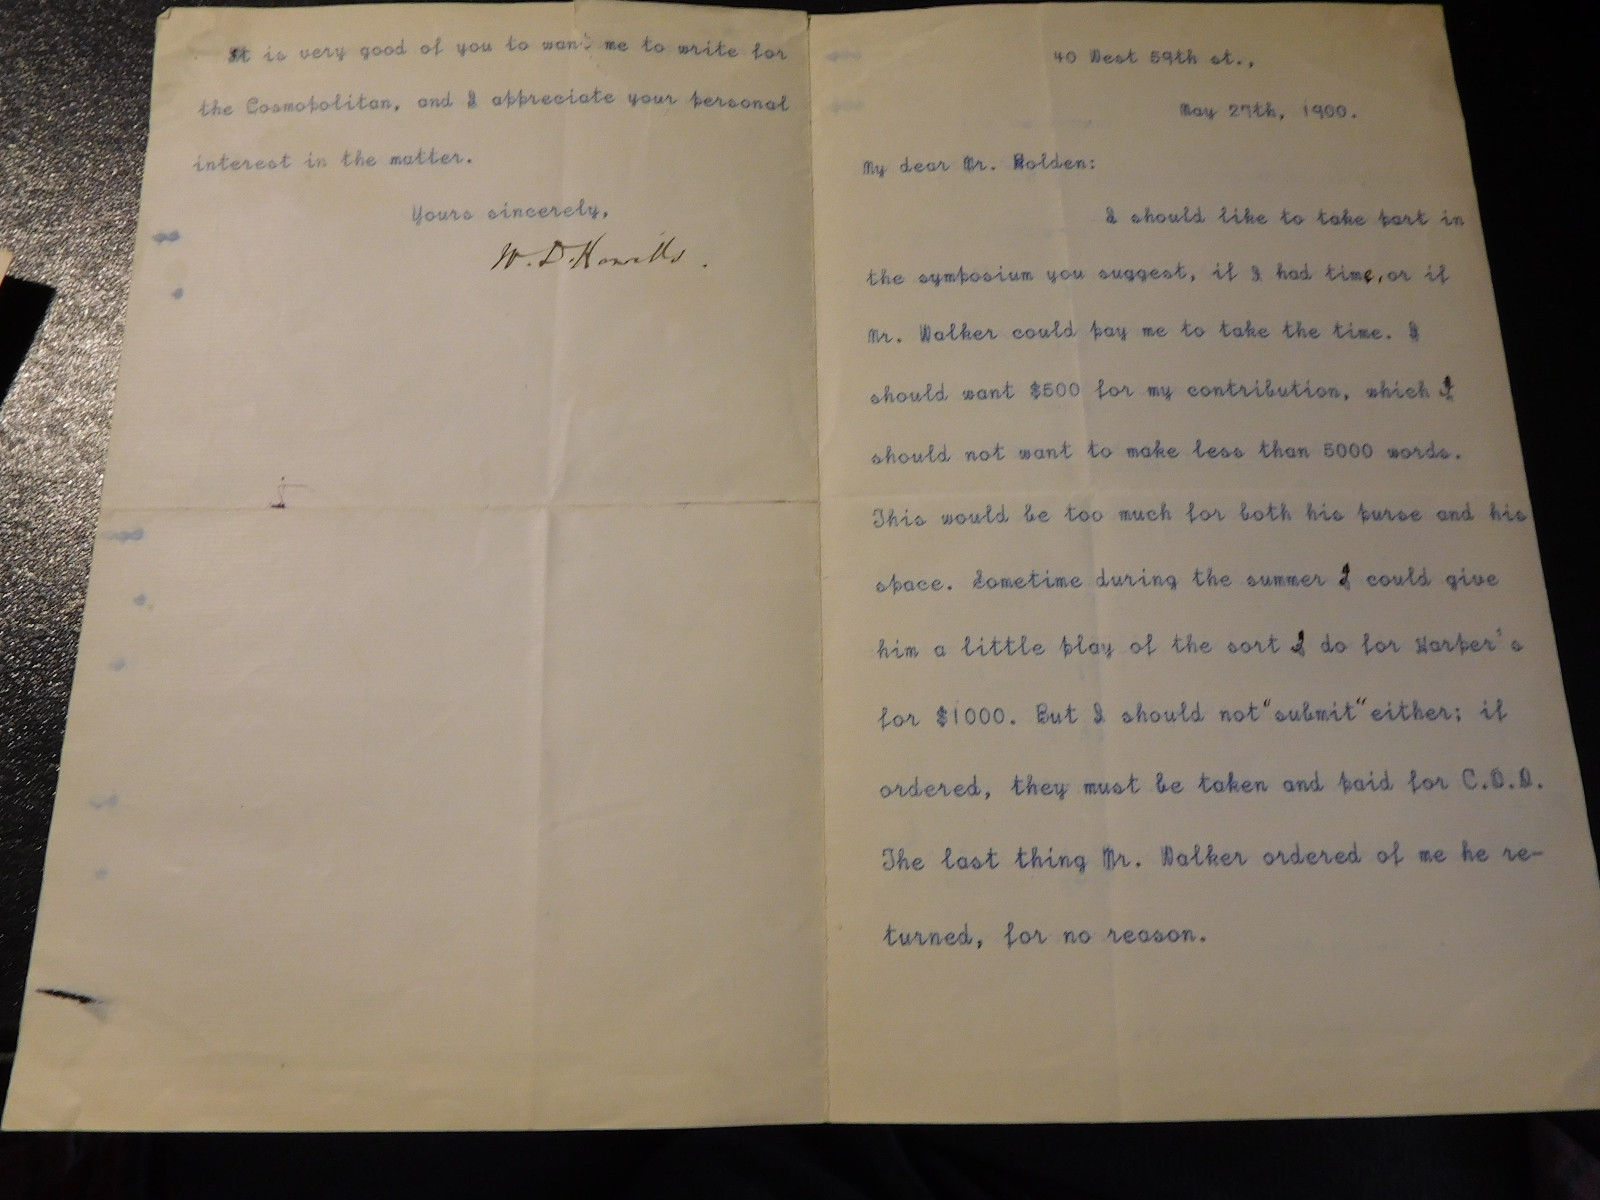 40 West 59th st.,
May 27th, 1900.
My dear Mr. Holden:
I should like to take part in
the symposium you suggest, if I had time, or if
Mr. Walker could pay me to take the time. I
should want $500 for my contribution, which I
should not want to make less than 5000 words.
This would be too much for both his purse and his
space. Sometime during the summer I could give
him a little play of the sort I do for Harper's
for $1000. But I should not "submit" either; if
ordered, they must be taken and paid for C.O.D.
The last thing Mr. Walker ordered of me he re-
turned, for no reason.
It is very good of you to want me to write for
the Cosmopolitan, and I appreciate your personal
interest in the matter.
Yours sincerely,
W. D. Howells.